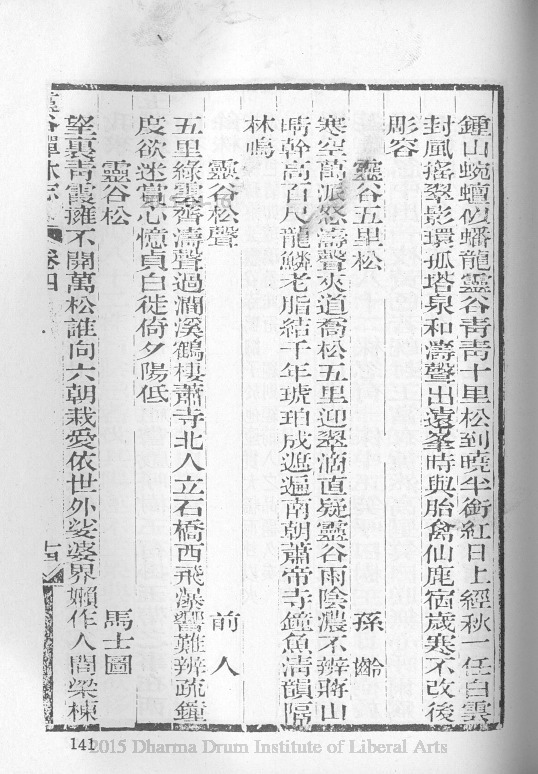 鍾山蜿蟺似蟠龍靈谷青青十里松到曉半銜紅日上經秋一任白雲
封風搖翠影環孤塔泉和濤聲出遠峯時與胎禽仙鹿宿歲寒不改後
彫容
靈谷五里松 孫 齡
寒空萬派怒濤聲夾道喬松五里迎翠滴直疑靈谷雨陰濃不辨蔣山
晴幹高百尺龍鱗老脂結千年琥珀成遮遍南朝蕭帝寺鐘魚清韻隔
林鳴
靈谷松聲 前 人
五里綠雲齊濤聲過澗溪鶴棲蕭寺北人立石橋西飛瀑響難辨疏鐘
度欲迷賞心憶貞白徙倚夕陽低
靈谷松 馬士圖
望裏青霞擁不開萬松誰向六朝栽愛依世外娑婆界嬾作人間梁棟
靈谷禪林志 卷四 十四
141
2015 Dharma Drum Institute of Liberal Arts